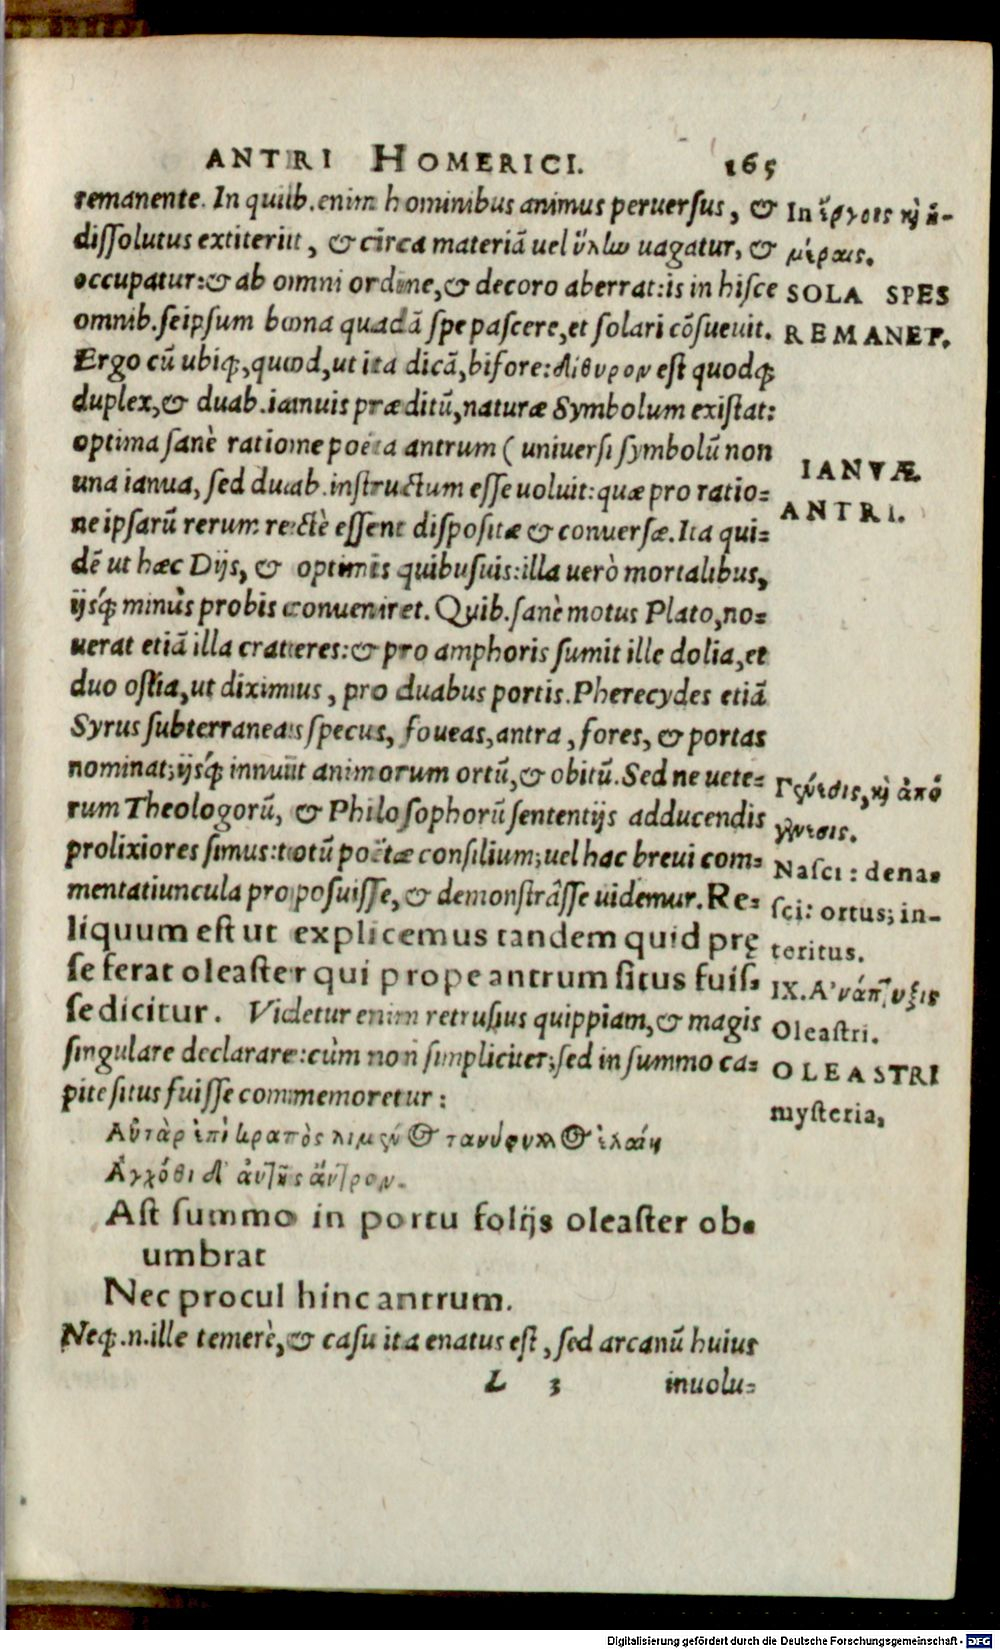 ANTRI HOMERICI. 165
remanente. In quib. enim hominibus animus peruersus, &
dissolutus extiterit, & circa materiã uel ὕλlω uagatur, &
occupatur: & ab omni ordine, & decoro aberrat: is in hisce
omnib. seipsum bona quadã spe pascere, et solari cõsueuit.
Ergo cũ ubiq;, quod, ut ita dicã, bifore: δίθυρον est quodq;
duplex, & duab. ianuis præditũ, naturæ Symbolum existat:
optima sanè ratione poëta antrum ( uniuersi symbolũ non
una ianua, sed duab. instructum esse uoluit: quæ pro ratio=
ne ipsarũ rerum rectè essent dispositæ & conuersæ. Ita qui=
dẽ ut hæc Dijs, & optimis quibusuis: illa uerò mortalibus,
ijsq́; minùs probis conueniret. Quib. sanè motus Plato, no=
uerat etiã illa crateres: & pro amphoris sumit ille dolia, et
duo ostia, ut diximus, pro duabus portis. Pherecydes etiã
Syrus subterraneas specus, foueas, antra, fores, & portas
nominat; ijsq́; innuit animorum ortũ, & obitũ. Sed ne uete=
rum Theologorũ, & Philosophorũ sententijs adducendis
prolixiores simus: totũ poëtæ consilium; uel hac breui com=
mentatiuncula proposuisse, & demonstrâsse uidemur. Re=
liquum est ut explicemus tandem quid prę
se ferat oleaster qui prope antrum situs fuis=
se dicitur. Videtur enim retrusius quippiam, & magis
singulare declarare: cùm non simpliciter; sed in summo ca=
pite situs fuisse commemoretur:
Αὐτὰρ ἐπὶ κρατὸς λιμένος τανύφυλλος ἐλαίη
Ἀγχόθι δ' αὐτῆς ἄντρον.
Ast summo in portu folijs oleaster ob=
umbrat
Nec procul hinc antrum.
Neq;. n. ille temerè, & casu ita enatus est, sed arcanũ huius
L 3 inuolu=
In ἔργοις καὶ ἡ-
μέραις.
SOLA SPES
REMANET.
IANVÆ
ANTRI.
Γένεσις, καὶ ἀπό
γένεσις.
Nasci: dena=
sci: ortus; in-
teritus.
IX. Ἀνάπτυξις
Oleastri.
OLEASTRI
mysteria,
Digitalisierung gefördert durch die Deutsche Forschungsgemeinschaft - DFG